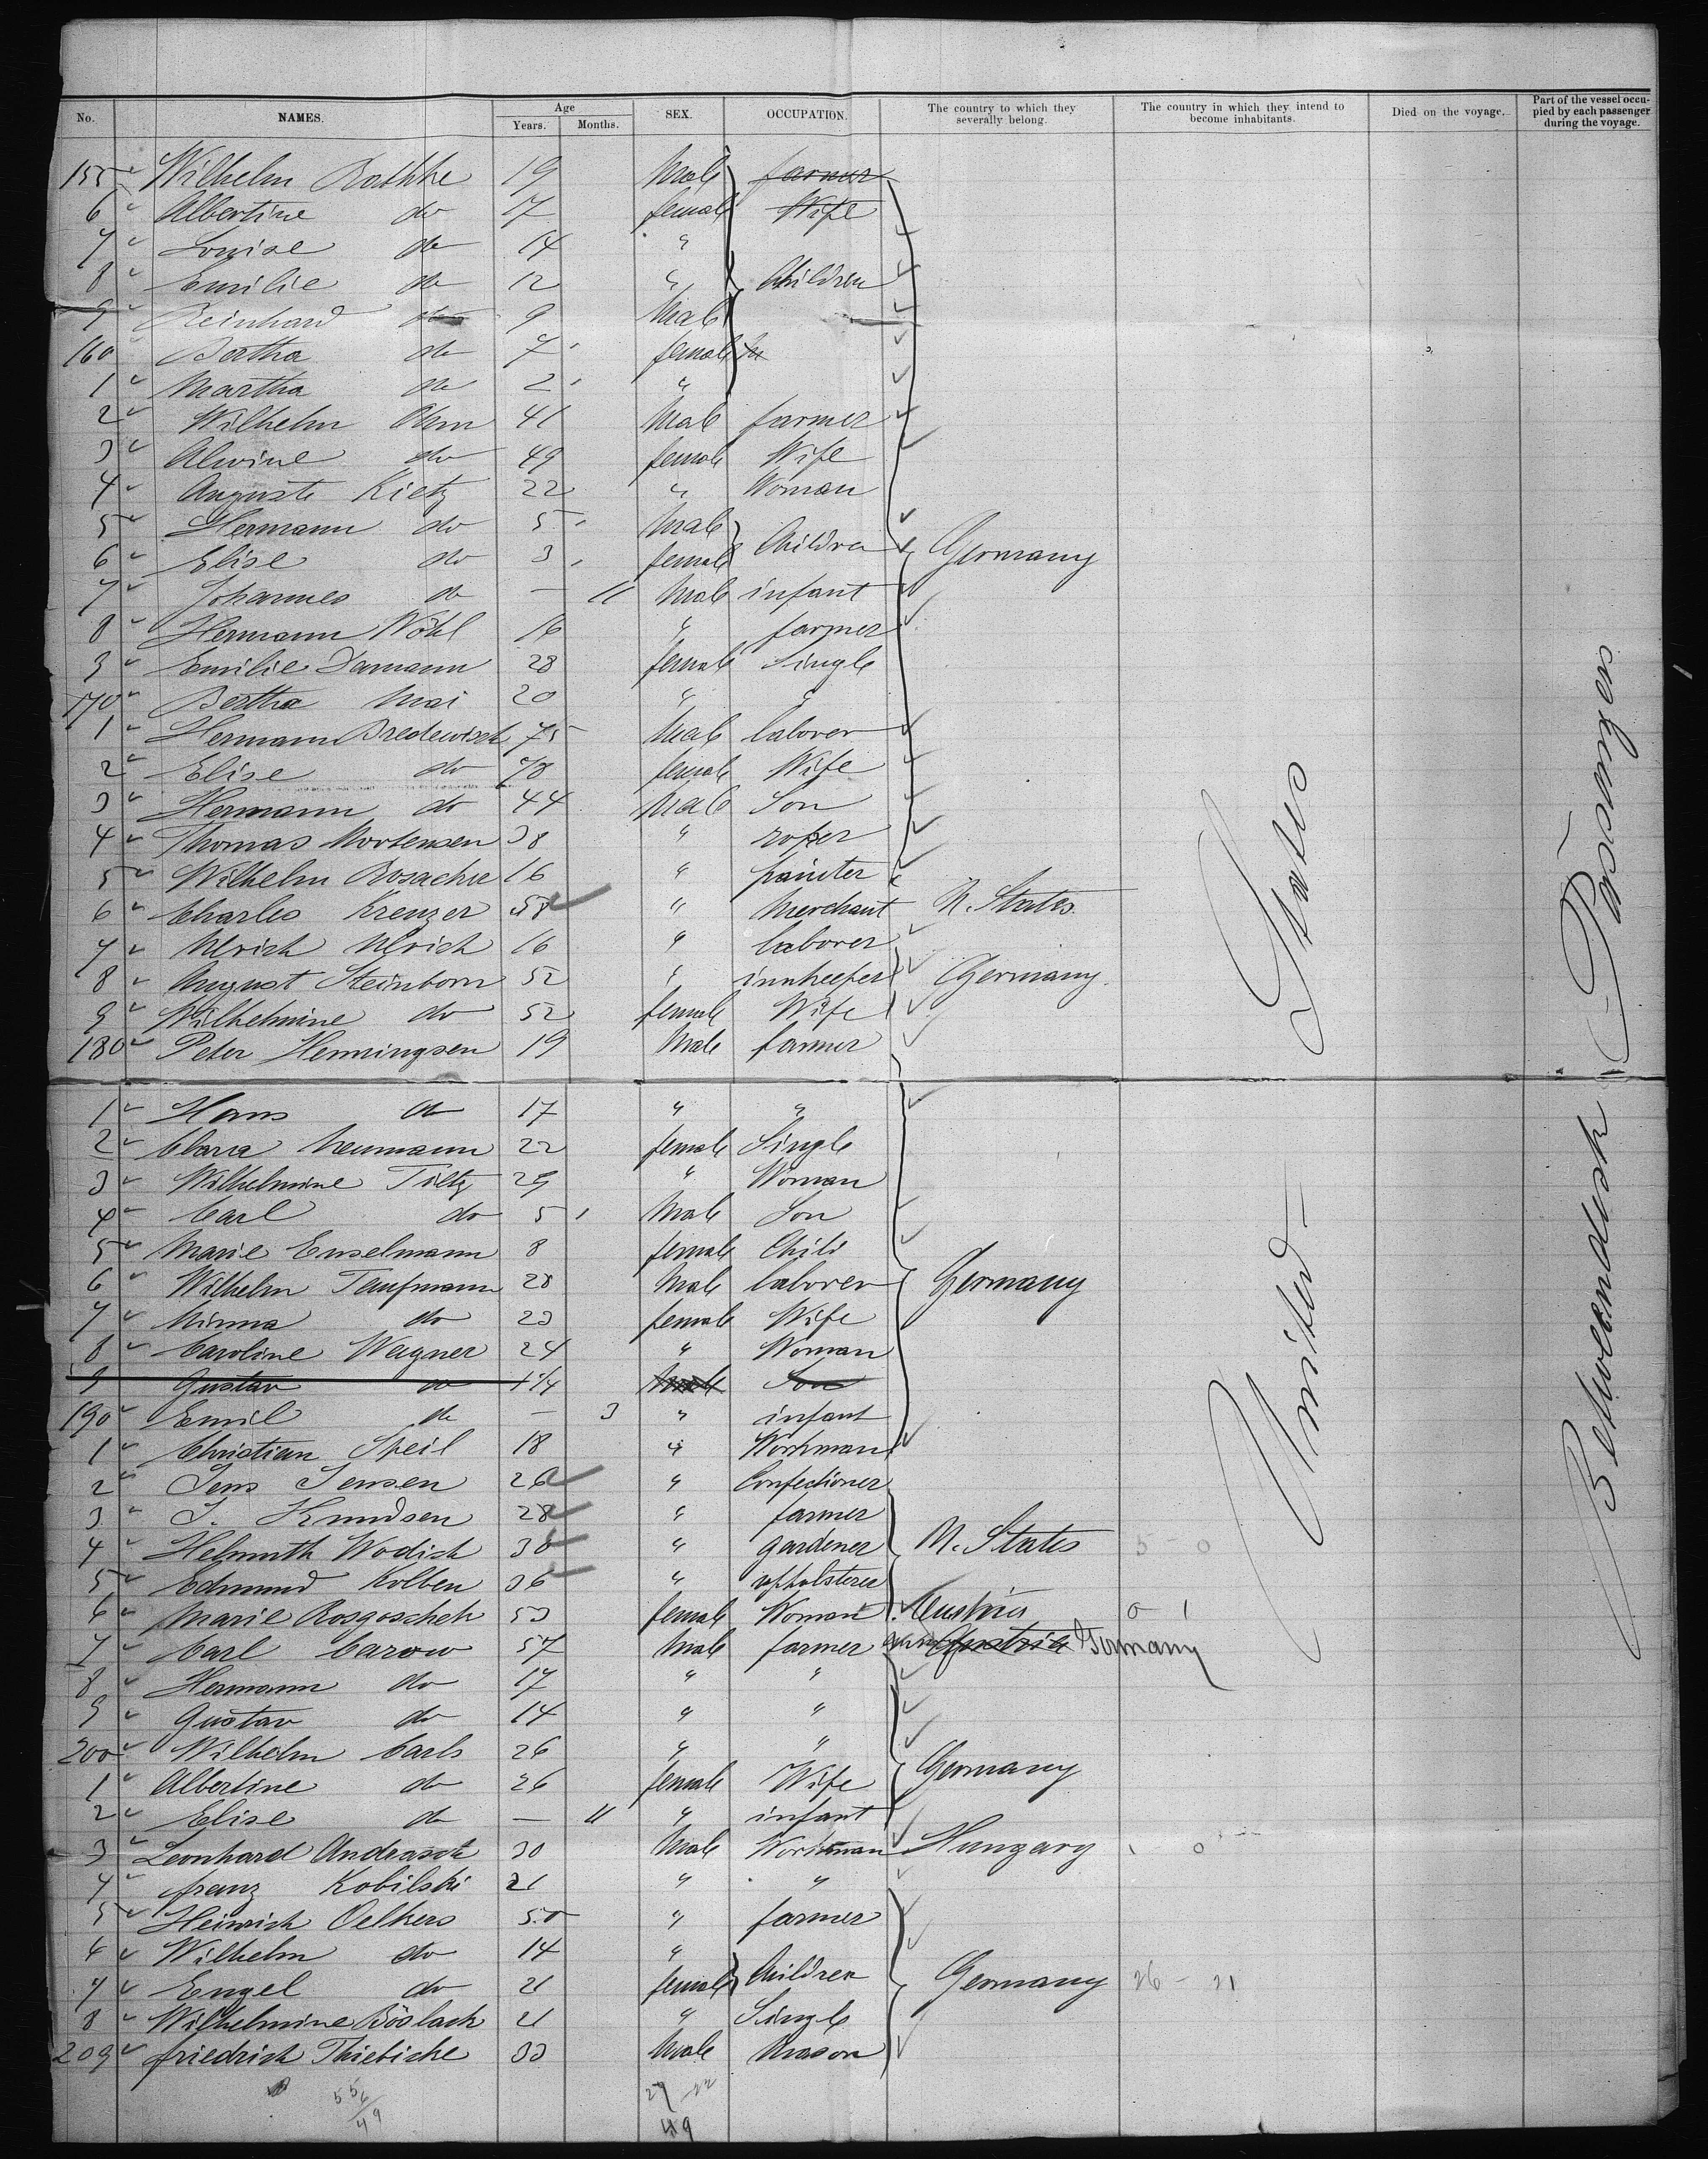 No. NAMES. Age Years. Months. SEX. OCCUPATION. The country to which they severally belong. The country in which they intend to become inhabitants. Died on the voyage. Part of the vessel occupied by each passenger during the voyage.
155 Wilhelm Rathke 19 Male farmer
6 Albertine do 17 female Wife
7 Louise do 14 "
8 Emilie do 12 " Children
9 Reinhard do 9 Male
160 Bertha do 7 female
1 Martha do 2 "
2 Wilhelm Ohm 41 Male farmer
3 Alwine do 49 female Wife
4 Auguste Kietz 22 " Woman
5 Hermann do 5 Male
6 Elise do 3 female Children Germany
7 Johannes do — 11 Male infant
8 Hermann Wöhl 16 " farmer
9 Emilie Damann 28 female Single
170 Bertha Mai 20 " "
1 Hermann Bredewisch 75 Male laborer
2 Elise do 78 female Wife
3 Hermann do 44 Male Son
4 Thomas Mortensen 38 " roper
5 Wilhelm Rosacher 16 " painter
6 Charles Kreuzer 48 " Merchant U. States
7 Ulrich Ulrich 16 " laborer
8 August Steinborn 52 " innkeeper Germany
9 Wilhelmine do 52 female Wife
180 Peter Henningsen 19 Male farmer
1 Hans do 17 " "
2 Clara Neumann 22 female Single
3 Wilhelmine Tiltz 29 " Woman
4 Carl do 5 Male Son
5 Marie Enselmann 8 female Child
6 Wilhelm Taufmann 28 Male laborer Germany
7 Minna do 23 female Wife
8 Caroline Wagner 24 " Woman
9 Gustav do 1 1/4 Male Son
190 Emil do — 3 " infant
1 Christian Speil 18 " Workman
2 Jens Jensen 26 " Confectioner
3 J. Knudsen 28 " farmer
4 Helmuth Wodich 38 " gardener U. States 5 - 0
5 Edmund Kolben 36 " upholsterer
6 Marie Rosgoschek 53 female Woman Austria 0 1
7 Carl Carow 57 Male farmer Austria Germany
8 Hermann do 17 " "
9 Gustav do 14 " "
200 Wilhelm Carls 26 " "
1 Albertine do 26 female Wife Germany
2 Elise do — 11 " infant
3 Leonhard Andrasch 30 Male Workman Hungary 1 0
4 franz Kobilski 21 " "
5 Heinrich Oelkers 50 " farmer
6 Wilhelm do 14 "
7 Engel do 21 female Children Germany 26 - 21
8 Wilhelmine Böslach 21 " Single
209 friedrich Thiebiche 33 Male Mason
27 - 22
49
United States
Betweendeck Passengers